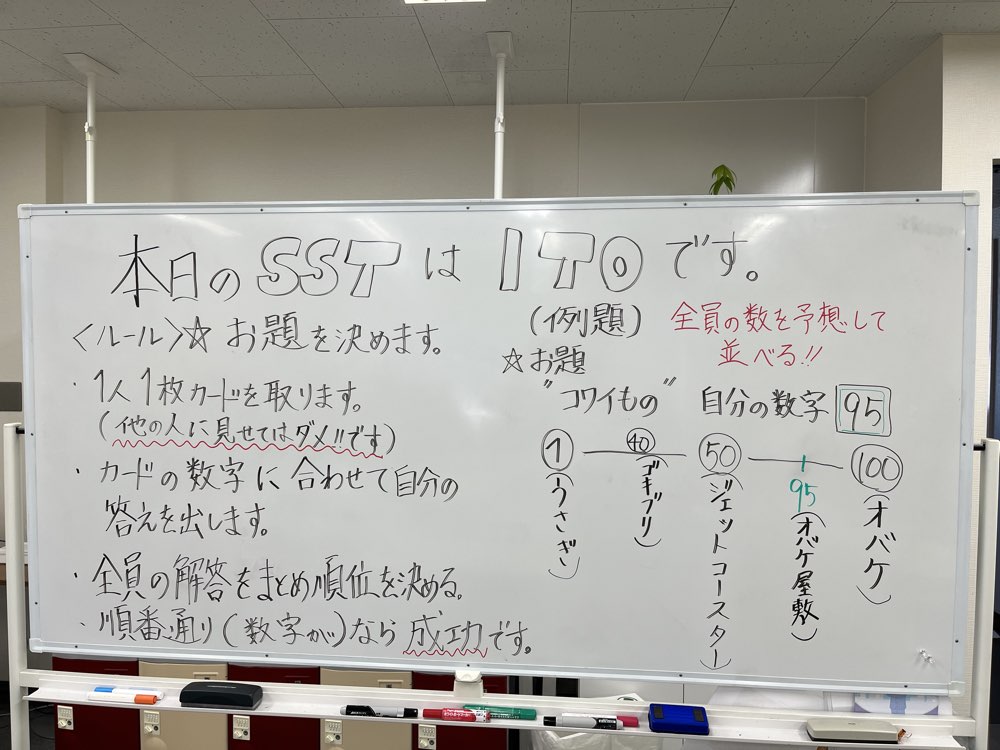 本日のSSTはITOです。
〈ルール〉☆お題を決めます。
・1人1枚カードを取ります。
(他の人に見せてはダメ!!です)
・カードの数字に合わせて自分の
答えを出します。
・全員の解答をまとめ順位を決める。
・順番通り(数字が)なら成功です。
(例題)
全員の数を予想して
並べる!!
☆お題
"コワイもの"
自分の数字 95
1
(うさぎ)
40
(ゴキブリ)
50
(ジェットコースター)
95
(オバケ屋敷)
100
(オバケ)